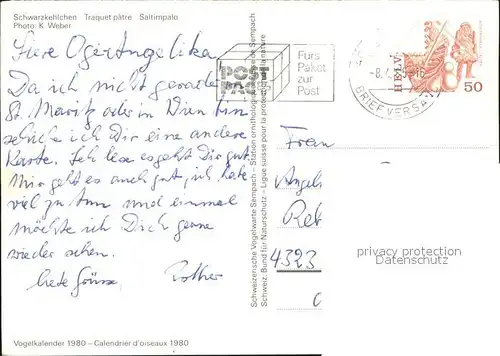 Schwarzkehlchen Traquet pâtre Saltimpalo
Photo: K. Weber
Angelika
Da ich nicht gerade
St. Moritz oder in Wien bin
schicke ich Dir eine andere
Karte. Ich lese es geht Dir gut.
Mir geht es auch gut, ich habe
viel zu tun und einmal
möchte ich Dich gerne
wieder sehen.
liebe Grüsse
Vogelkalender 1980 – Calendrier d'oiseaux 1980
Schweizerische Vogelwarte Sempach – Station ornithologique suisse de Sempach
Schweiz. Bund für Naturschutz – Ligue suisse pour la protection de la nature
POST
PAC
Fürs
Paket
zur
Post
-8.
BRIEFVERSA
HELV
50
Frau
Angel
Reb
4323
privacy protection
Datenschutz